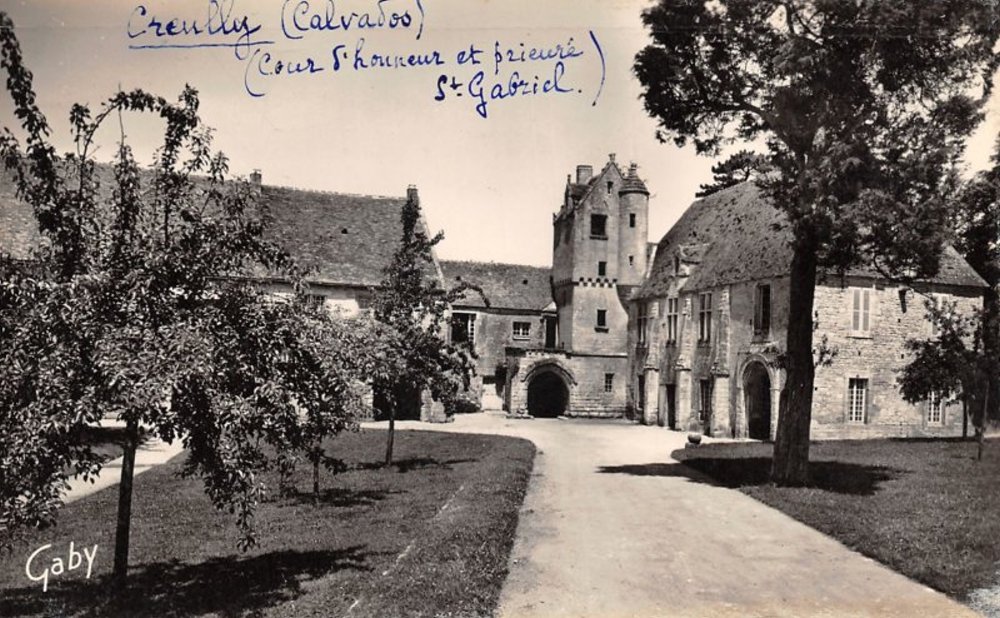 Creully (Calvados)
(Cour d'honneur et prieuré
St Gabriel.)
Gaby